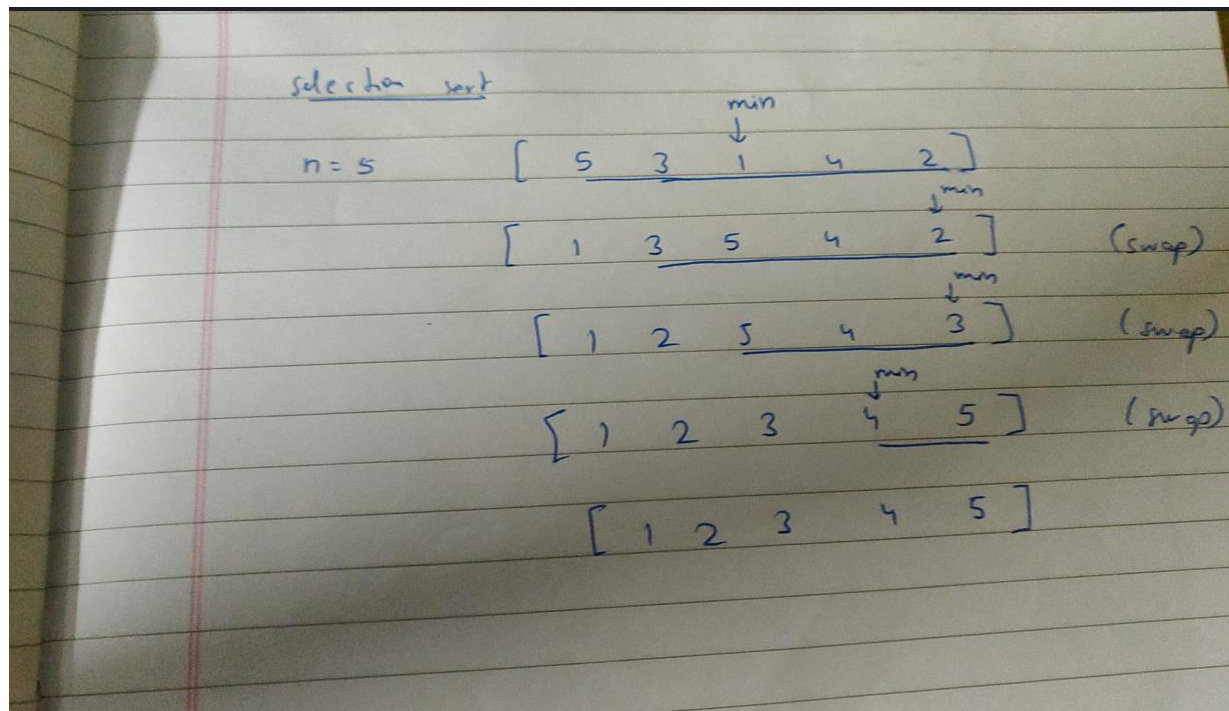 selection sort
min
n = 5 [ 5 3 1 4 2 ]
min
[ 1 3 5 4 2 ] (swap)
min
[ 1 2 5 4 3 ] (swap)
min
[ 1 2 3 4 5 ] (swap)
[ 1 2 3 4 5 ]